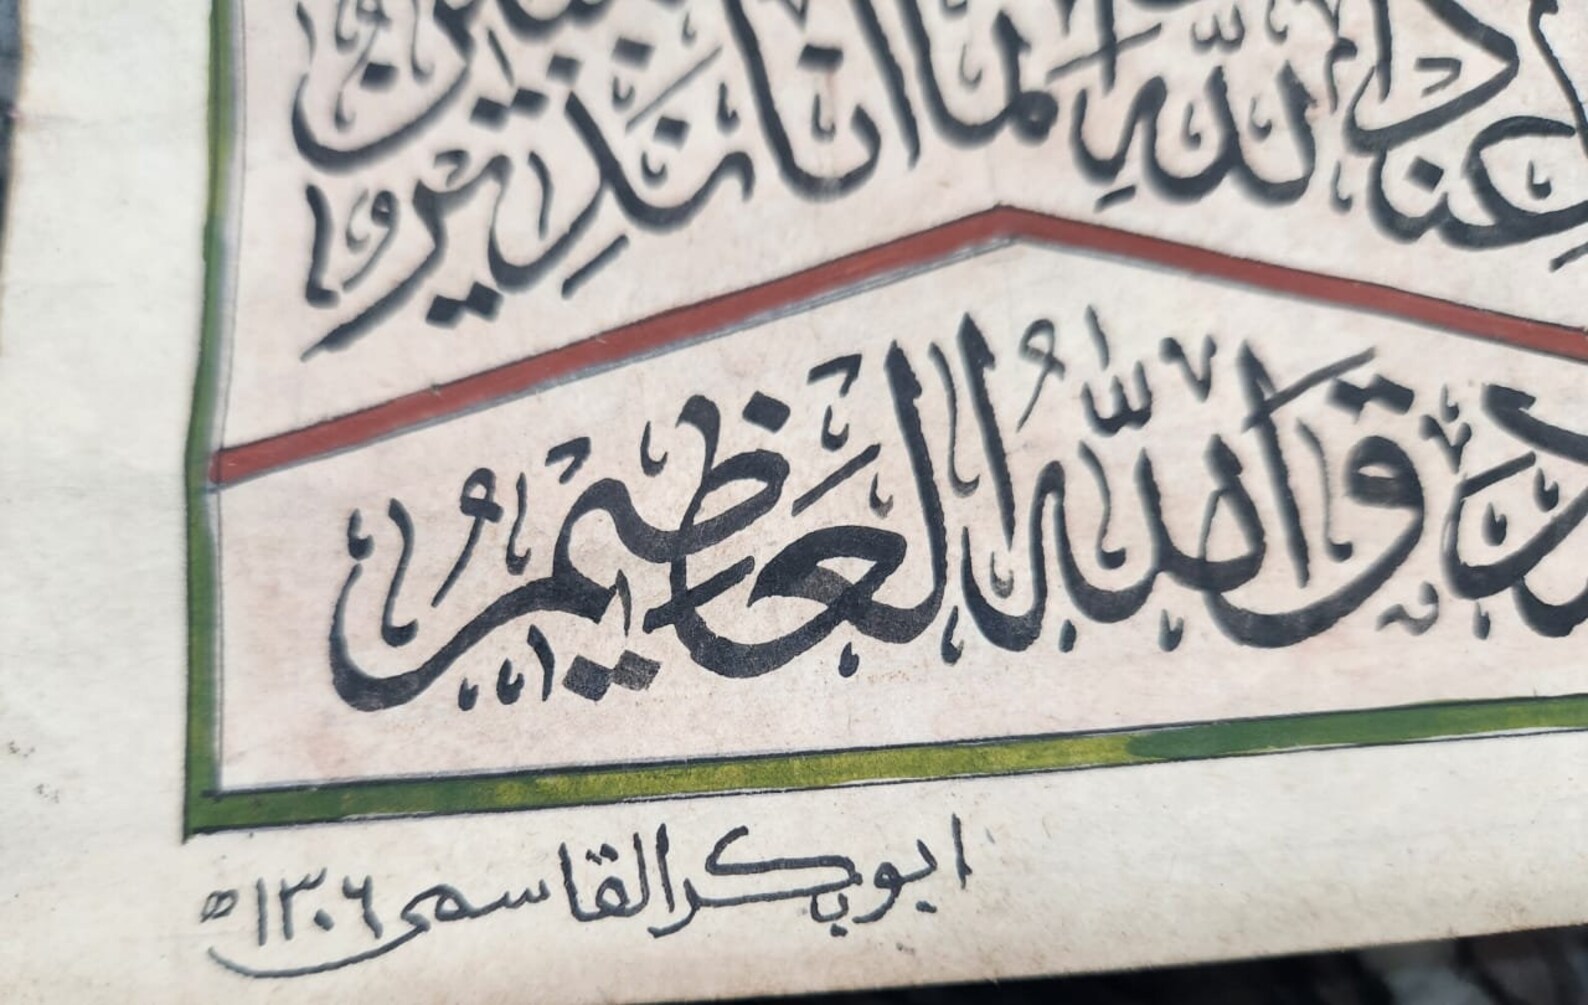 عِندَ اللهِ وَإِنَّمَا أَنَا نَذِيرٌ مُبِينٌ
صَدَقَ اللهُ العَظِيمُ
ابوبكر القاسمى ١٣٠٦ ھ